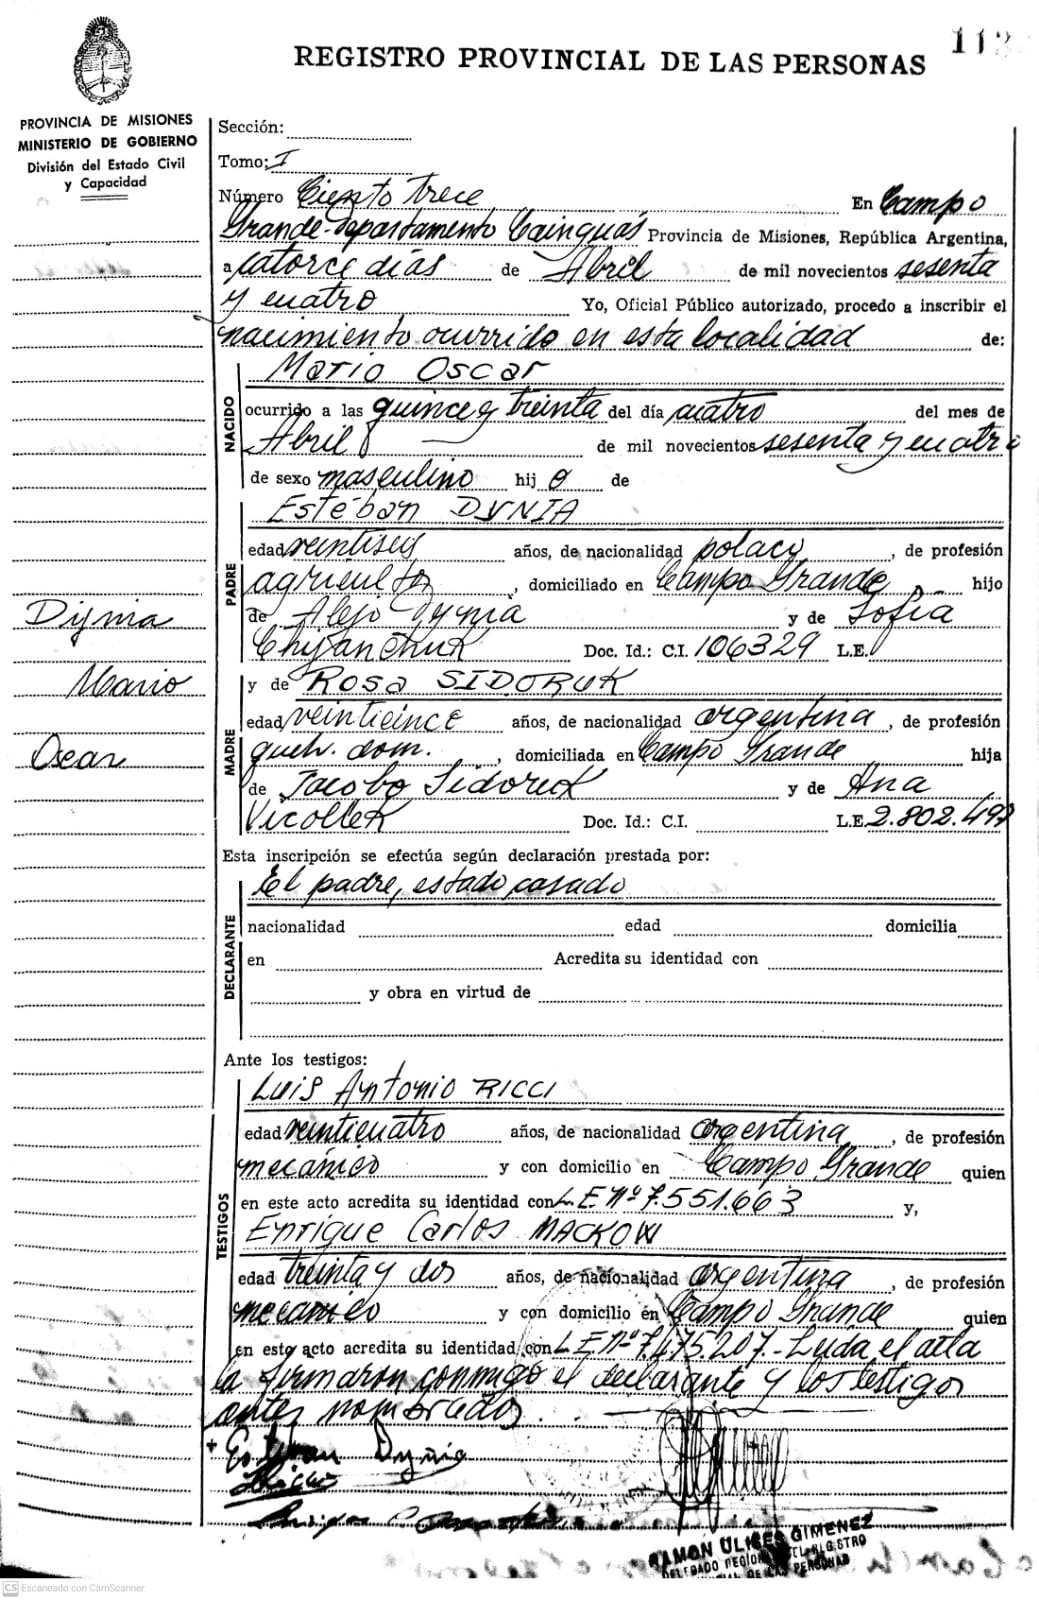 113
REGISTRO PROVINCIAL DE LAS PERSONAS
PROVINCIA DE MISIONES
MINISTERIO DE GOBIERNO
División del Estado Civil
y Capacidad
Sección:
Tomo: I
Número Ciento trece En Campo
Grande - Departamento Cainguás Provincia de Misiones, República Argentina,
a catorce días de Abril de mil novecientos sesenta
y cuatro Yo, Oficial Público autorizado, procedo a inscribir el
nacimiento ocurrido en esta localidad de:
NACIDO
Mario Oscar
ocurrido a las quince y treinta del día cuatro del mes de
Abril de mil novecientos sesenta y cuatro
de sexo masculino hij o de
PADRE
Esteban DYNIA
edad veintiseis años, de nacionalidad polaca, de profesión
agricultor, domiciliado en Campo Grande, hijo
de Alejo Dynia y de Sofía
Chijanchuk Doc. Id.: C.I. 106329 L.E.
Dynia
Mario
Oscar
MADRE
y de Rosa SIDORUK
edad veinticinco años, de nacionalidad argentina, de profesión
queh. dom., domiciliada en Campo Grande hija
de Jacobo Sidoruk y de Ana
Doc. Id.: C.I. L.E. 2.802.497
Esta inscripción se efectúa según declaración prestada por:
DECLARANTE
El padre, estado casado
nacionalidad edad domicilia
en Acredita su identidad con
y obra en virtud de
Ante los testigos:
TESTIGOS
Luis Antonio RICCI
edad veinticuatro años, de nacionalidad argentina, de profesión
mecánico y con domicilio en Campo Grande quien
en este acto acredita su identidad con L.E. Nº 7.551.663 y,
Enrique Carlos MACKOW
edad treinta y dos años, de nacionalidad argentina, de profesión
mecanico y con domicilio en Campo Grande quien
en esto acto acredita su identidad con L.E. Nº 7.475.207.- Leída el acta
la firmaron conmigo el declarante y los testigos
antes nombrados.
+ Esteban Dynia
RAMON ULISES GIMENEZ
DELEGADO REGIONAL DEL REGISTRO
DE LAS PERSONAS
CS Escaneado con CamScanner